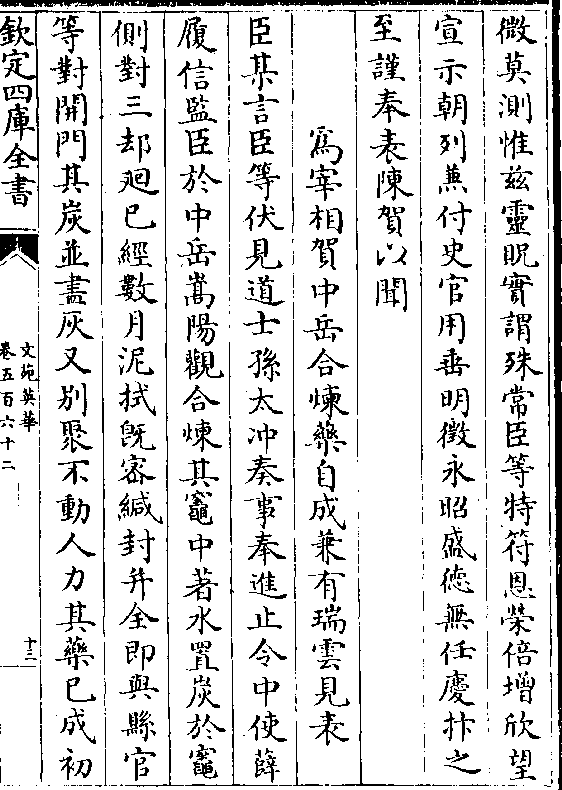 微莫測惟兹靈貺實謂殊常臣等特符恩榮倍增欣望
宣示朝列兼付史官用垂明徴永昭盛徳無任慶抃之
至謹奉表陳賀以聞
爲宰相賀中岳合煉藥自成兼有瑞雲見表
臣某言臣等伏見道士孫太冲奏事奉進止令中使薛
履信監臣於中岳嵩陽觀合煉其竈中著水置炭於竈
側對三却廻已經數月泥拭旣宻緘封并全即與縣官
等對開門其炭並盡灰又别聚不動人力其藥已成初
欽定四庫全書
文苑英華
卷五百六十二
十三